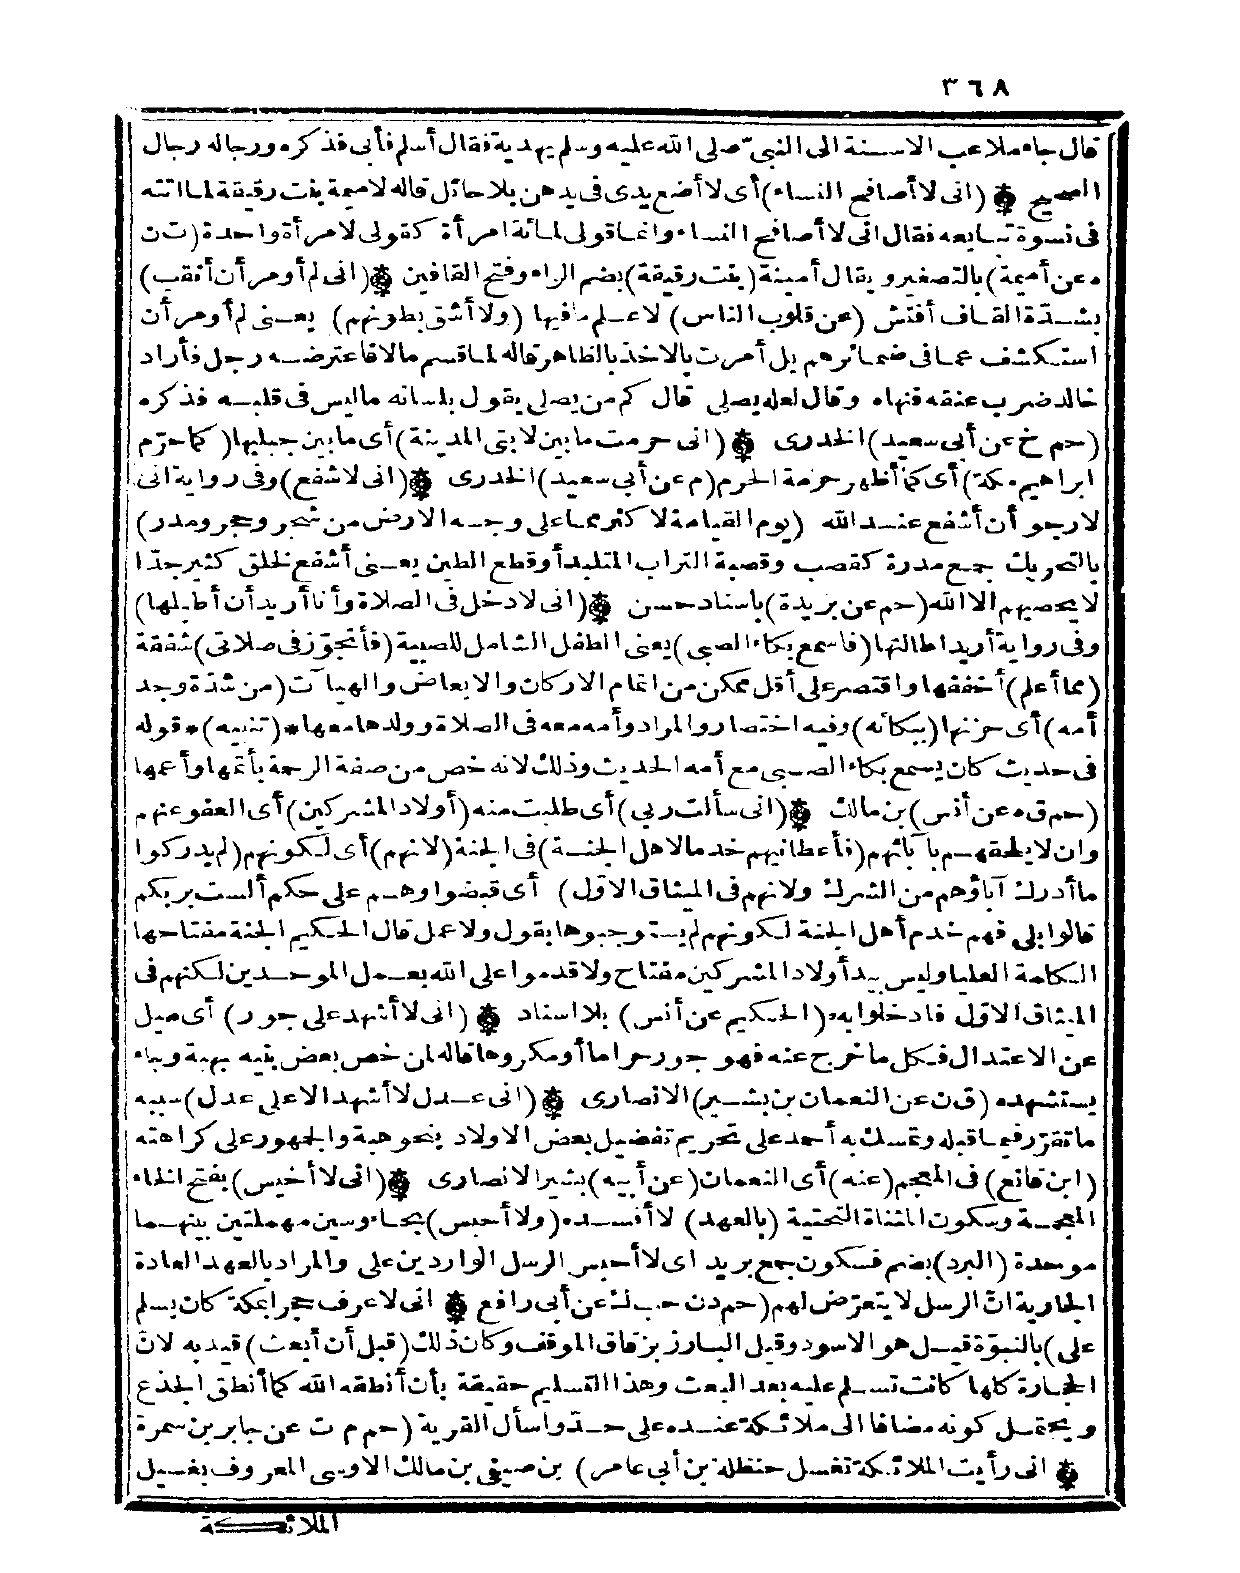 ٣٦٨
قال جاء ملاعب الاسنة الى النبىّ صلى الله عليه وسلم بهدية فقال أسلم فأبى فذكره ورجاله رجال
الصحيح ۞ (انى لا أصافح النساء) أى لا أضع يدى فى يدهن بلا حائل قاله لاميمة بنت رقيقة لما اتته
فى نسوة تبايعه فقال انى لا أصافح النساء وانما قولى لمائة امرأة كقولى لامرأة واحدة (ت ن
ه عن أميمة) بالتصغير ويقال أمينة (بنت رقيقة) بضم الراء وفتح القافين ۞ (انى لم أومر أن أنقب)
بشدّة القاف أفتش (عن قلوب الناس) لاعلم ما فيها (ولا أشق بطونهم) يعنى لم أومر أن
استكشف عما فى ضمائرهم بل أمرت بالاخذ بالظاهر قاله لما قسم مالا فاعترضه رجل فأراد
خالد ضرب عنقه فنهاه وقال لعله يصلى قال كم من يصلى يقول بلسانه ما ليس فى قلبه فذكره
(حم خ عن أبى سعيد) الخدرى ۞ (انى حرمت ما بين لابتى المدينة) أى ما بين جبليها (كما حرّم
ابراهيم مكة) أى كما أظهر حرمة الحرم (م عن أبى سعيد) الخدرى ۞ (انى لاشفع) وفى رواية انى
لارجو أن أشفع عند الله (يوم القيامة لاكثر مما على وجه الارض من شجر وحجر ومدر)
بالتحريك جمع مدرة كقصب وقصبة التراب المتلبد أو قطع الطين يعنى أشفع لخلق كثير جدّا
لا يحصيهم الا الله (حم عن بريدة) باسناد حسن ۞ (انى لادخل فى الصلاة وأنا أريد أن أطيلها)
وفى رواية أريد اطالتها (فاسمع بكاء الصبى) يعنى الطفل الشامل للصبية (فأتجوّز فى صلاتى) شفقة
(مما أعلم) أخففها واقتصر على أقل ممكن من اتمام الاركان والابعاض والهيآت (من شدّة وجد
أمه) أى حزنها (ببكائه) وفيه اختصار والمراد وأمه معه فى الصلاة وولدها معها * (تنبيه) * قوله
فى حديث كان يسمع بكاء الصبى مع أمه الحديث وذلك لانه خص من صفة الرحمة بأتمها وأعمها
(حم ق ه عن أنس) بن مالك ۞ (انى سألت ربى) أى طلبت منه (أولاد المشركين) أى العفو عنهم
وان لا يلحقهم بآبائهم (فأعطانيهم خدما لاهل الجنة) فى الجنة (لانهم) أى لكونهم (لم يدركوا
ما أدرك آباؤهم من الشرك ولانهم فى الميثاق الاول) أى قبضوا وهم على حكم ألست بربكم
قالوا بلى فهم خدم أهل الجنة لكونهم لم يستوجبوها بقول ولا عمل قال الحكيم الجنة مفتاحها
الكلمة العليا وليس بيد أولاد المشركين مفتاح ولا قدموا على الله بعمل الموحدين لكنهم فى
الميثاق الاول فادخلوا به (الحكيم عن أنس) بلا اسناد ۞ (انى لا أشهد على جور) أى ميل
عن الاعتدال فكل ما خرج عنه فهو جور حراما أو مكروها قاله لمن خص بعض بنيه بهبة وجاء
يستشهده (ق ن عن النعمان بن بشير) الانصارى ۞ (انى عدل لا أشهد الا على عدل) سببه
ما تقرّر فيما قبله وتمسك به أحمد على تحريم تفضيل بعض الاولاد بنحو هبة والجمهور على كراهته
(ابن قانع) فى المعجم (عنه) أى النعمان (عن أبيه) بشير الانصارى ۞ (انى لا أخيس) بفتح الخاء
المعجمة وسكون المثناة التحتية (بالعهد) لا أفسده (ولا أحبس) بحاء وسين مهملتين بينهما
موحدة (البرد) بضم فسكون جمع بريد اى لا أحبس الرسل الواردين على والمراد بالعهد العادة
الجارية انّ الرسل لا يتعرّض لهم (حم د ن حب ك عن أبى رافع ۞ انى لاعرف حجرا بمكة كان يسلم
على) بالنبوّة قيل هو الاسود وقيل البارز بزقاق الموقف وكان ذلك (قبل أن أبعث) قيد به لانّ
الحجارة كلها كانت تسلم عليه بعد البعث وهذا التسليم حقيقة بأن أنطقه الله كما أنطق الجذع
ويحتمل كونه مضافا الى ملائكة عنده على حدّ واسأل القرية (حم م ت عن جابر بن سمرة
۞ انى رأيت الملائكة تغسل حنظلة بن أبى عامر) بن صيفى بن مالك الاوسى المعروف بغسيل
الملائكة